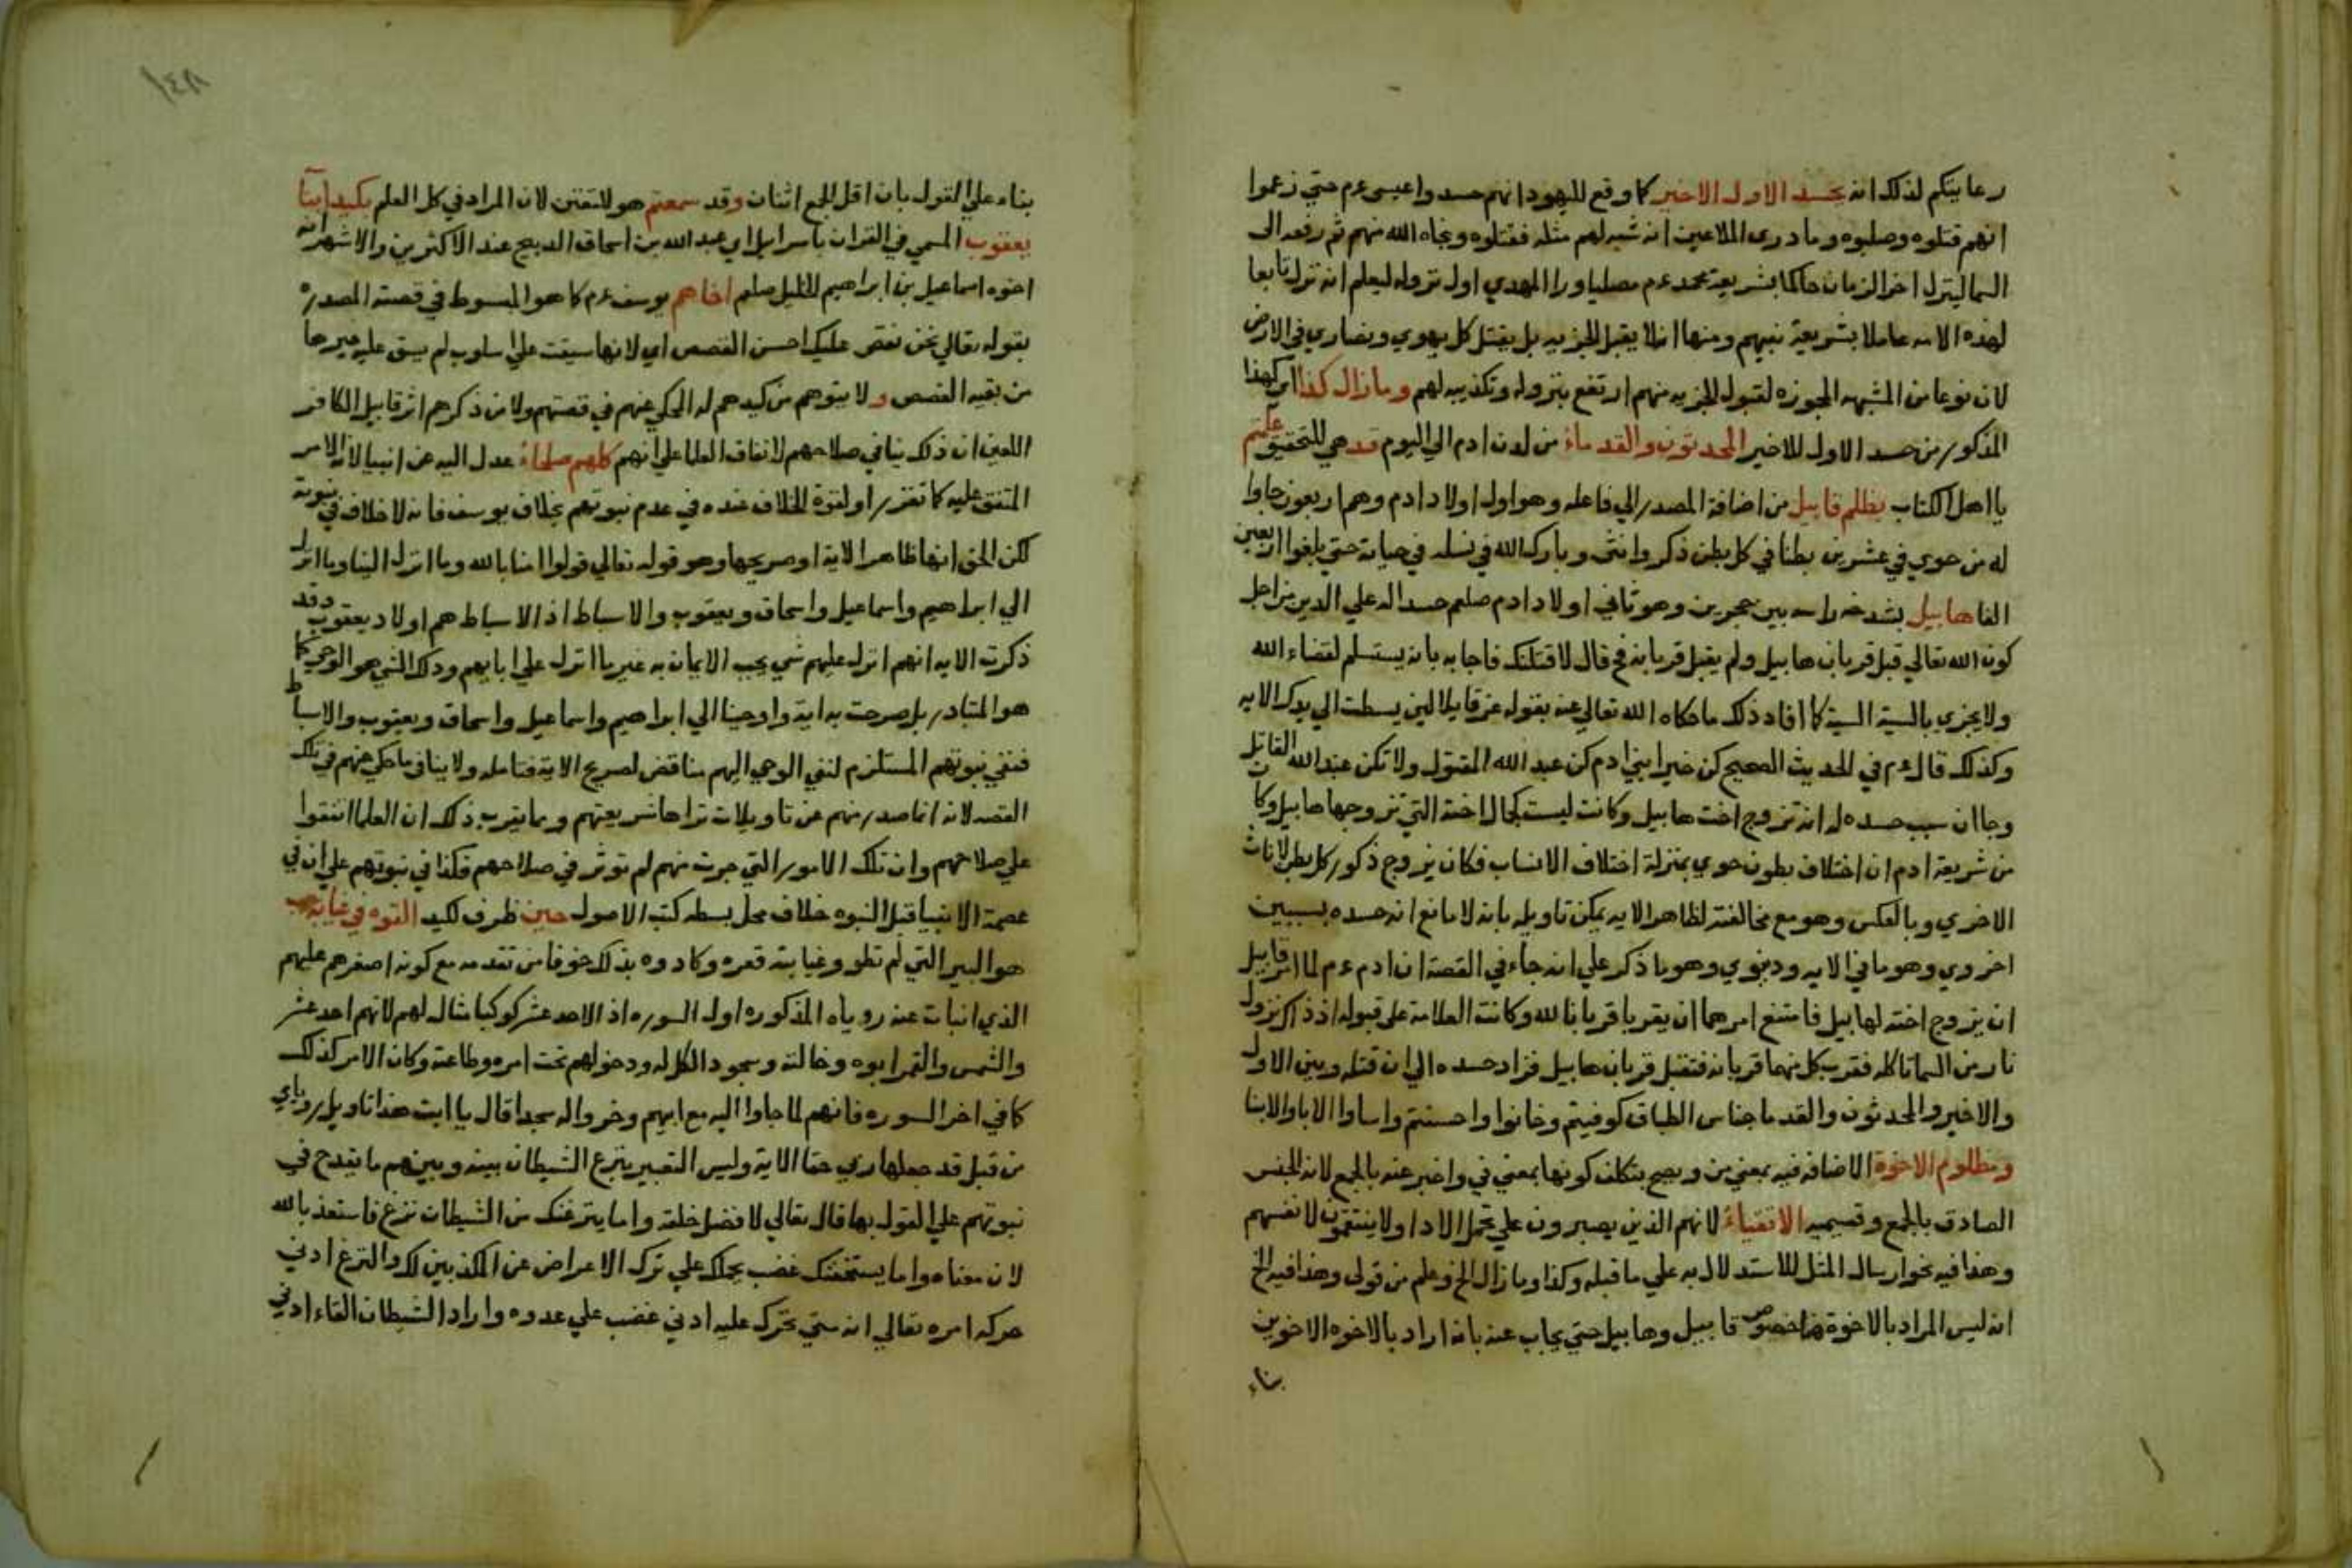 رعايتكم لذلك انه يحسد الاول الاخير كما وقع لليهود انهم حسدوا عيسى ءم حتي زعموا
انهم قتلوه وصلبوه وما دري الملاعين انه شبه لهم مثله فقتلوه ونجاه الله منهم ثم رفعه الى
السما لينزل اخر الزمان حاكما بشريعة محمد ءم مصليا ورا المهدي اول نزوله ليعلم انه نزل تابعا
لهذه الامه عاملا بشريعة نبيهم ومنها انه لا يقبل الجزيه بل يقتل كل يهودي ونصاري في الارض
لان نوعا من الشبهه المجوزه لقبول الجزيه منهم ارتفع بنزوله وتكذيبه لهم وما زال كذا اي كهذا
المذكور من حسد الاول للاخير المحدثون والقدماء من لدن ادم الي اليوم قد هي للتحقيق علمتم
يا اهل الكتاب بظلم قابيل من اضافة المصدر الي فاعله وهو اول اولاد ادم وهم اربعون جاوا
له من حوي في عشرين بطنا في كل بطن ذكر وانثى وبارك الله في نسله في حياته حتي بلغوا اربعين
الفا هابيل بشدخه راسه بين حجرين وهو ثاني اولاد ادم صلعم حسدا له علي الدين من اجل
كون الله تعالي قبل قربان هابيل ولم يقبل قربانه فح قال لاقتلنك فاجابه بانه يستسلم لقضاء الله
ولا يجزي بالسية السية كما افاد ذلك ما حكاه الله تعالي عنه بقوله عز قايلا لين بسطت الي يدك الايه
وكذلك قال ءم في الحديث الصحيح كن خير ابني ادم كن عبد الله المقتول ولا تكن عبد الله القاتل
وجا ان سبب حسده له انه تزوج اخت هابيل وكانت ليست بجمال اخته التي تزوجها هابيل وكان
من شريعة ادم ان اختلاف بطون حوي بمنزلة اختلاف الانساب فكان يزوج ذكور كل بطن لاناث
الاخري وبالعكس وهو مع مخالفته لظاهر الايه يمكن تاويله بانه لا مانع انه حسده بسببين
اخروي وهو ما في الايه ودنيوي وهو ما ذكر علي انه جاء في القصة ان ادم ءم لما امر قابيل
ان يزوج اخته لهابيل فامتنع امرهما ان يقربا قربانا لله وكانت العلامة على قبوله اذ ذاك نزول
نار من السما تاكله فقرب كل منهما قربانه فتقبل قربان هابيل فزاد حسده الي ان قتله وبين الاول
والاخير والمحدثون والقدما جناس الطباق كوفيتم وخانوا واحسنتم واساوا الابا والابنا
ومظلوم الاخوة الاضافه فيه بمعني من ويصح بتكلف كونها بمعني في واخبر عنه بالجمع لانه للجنس
الصادق بالجمع وتسميه الاتقياء لانهم الذين يصبرون علي تحمل الاذا ولا ينتقمون لانفسهم
وهذا فيه نحو ارسال المثل للاستدلال به علي ما قبله وكذا وما زال الخ وعلم من قولي وهذا فيه الخ
انه ليس المراد بالاخوة هنا خصوص قابيل وهابيل حتي يجاب عنه بانه اراد بالاخوه الاخوين
بناء
١٤٨
بناء علي القول بان اقل الجمع اثنان وقد سمعتم هو للتفنن لان المراد في كل العلم بكيد ابنا
يعقوب المسمي في القران باسرايل اي عبد الله بن اسحاق الذبيح عند الاكثرين والاشهر انه
اخوه اسماعيل بن ابراهيم الخليل صلعم اخاهم يوسف ءم كما هو المبسوط في قصته المصدره
بقوله تعالي نحن نقص عليك احسن القصص اي لانها سيقت علي اسلوب لم يسق عليه غيرها
من بقيه القصص و لا يتوهم من كيدهم له المحكي عنهم في قصتهم ولا من ذكرهم اثر قابيل الكافر
اللعين ان ذلك ينافي صلاحهم لاتفاق العلما علي انهم كلهم صلحاء عدل اليه عن انبيا لانه الامر
المتفق عليه كما تقرر او لقوة الخلاف عنده في عدم نبوتهم بخلاف يوسف فانه لا خلاف في نبوته
لكن الحق انها ظاهر الاية او صريحها وهو قوله تعالي قولوا امنا بالله وما انزل الينا وما انزل
الي ابراهيم واسماعيل واسحاق ويعقوب والاسباط اذ الاسباط هم اولاد يعقوب وقد
ذكرت الايه انهم انزل عليهم شي يجب الايمان به غير ما انزل علي ابايهم وذلك الشي هو الوحي كما
هو المتبادر بل صرحت به اية واوحينا الي ابراهيم واسماعيل واسحاق ويعقوب والاسباط
فنفي نبوتهم المستلزم لنفي الوحي اليهم مناقض لصريح الاية فتامله ولا ينافي ما حكي عنهم في تلك
القصه لانه انما صدر منهم عن تاويلات تراها شريعتهم ومما يقرب ذلك ان العلما اتفقوا
علي صلاحهم وان تلك الامور التي جرت منهم لم توثر في صلاحهم فكذا في نبوتهم علي ان في
عصمة الانبيا قبل النبوه خلاف محل بسطه كتب الاصول حين ظرف لكيد القوه في غيابة جب
هو البير التي لم تطو وغيابته قعره وكادوه بذلك خوفا من تقدمه مع كونه اصغرهم عليهم
الذي انبات عنه روياه المذكوره اول السوره اذ الاحد عشر كوكبا مثال لهم لانهم احد عشر
والشمس والقمر ابوه وخالته وسجود الكل له ودخولهم تحت امره وطاعته وكان الامر كذلك
كما في اخر السوره فانهم لما جاوا اليه مع ابيهم وخروا له سجدا قال يا ابت هذا تاويل روياي
من قبل قد جعلها ربي حقا الاية وليس التعبير بنزع الشيطان بينه وبينهم ما يقدح في
نبوتهم علي القول بها قال تعالي لافضل خلقه واما ينزغنك من الشيطان نزغ فاستعذ بالله
لان معناه واما يستخفنك غضب يحملك علي ترك الاعراض عن المكذبين لك والنزغ ادني
حركه امره تعالي انه متي تحرك عليه ادني غضب علي عدوه واراد الشيطان القاء ادني